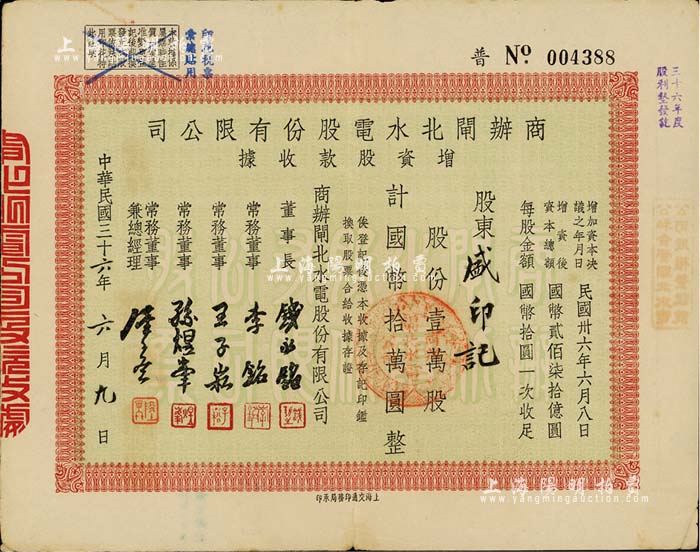 普 No. 004388
印花稅票
彙總貼用
三十六年度
股利整發訖
司公限有份股電水北閘辦商
據收款股資增
增加資本決
議之年月日
民國卅六年六月八日
增資後
資本總額
國幣貳佰柒拾億圓
每股金額
國幣拾圓一次收足
股東 盛印記
股份壹萬股
計國幣拾萬圓整
俟登記後憑本收據及存記印鑑
換取股票合給收據存證
商辦閘北水電股份有限公司
董事長
常務董事 李銘
常務董事 王子崧
常務董事 孫煜峯
常務董事
兼總經理
中華民國三十六年六月九日
印承局務印通交海上
上海陽明拍賣
www.yangmingauction.com